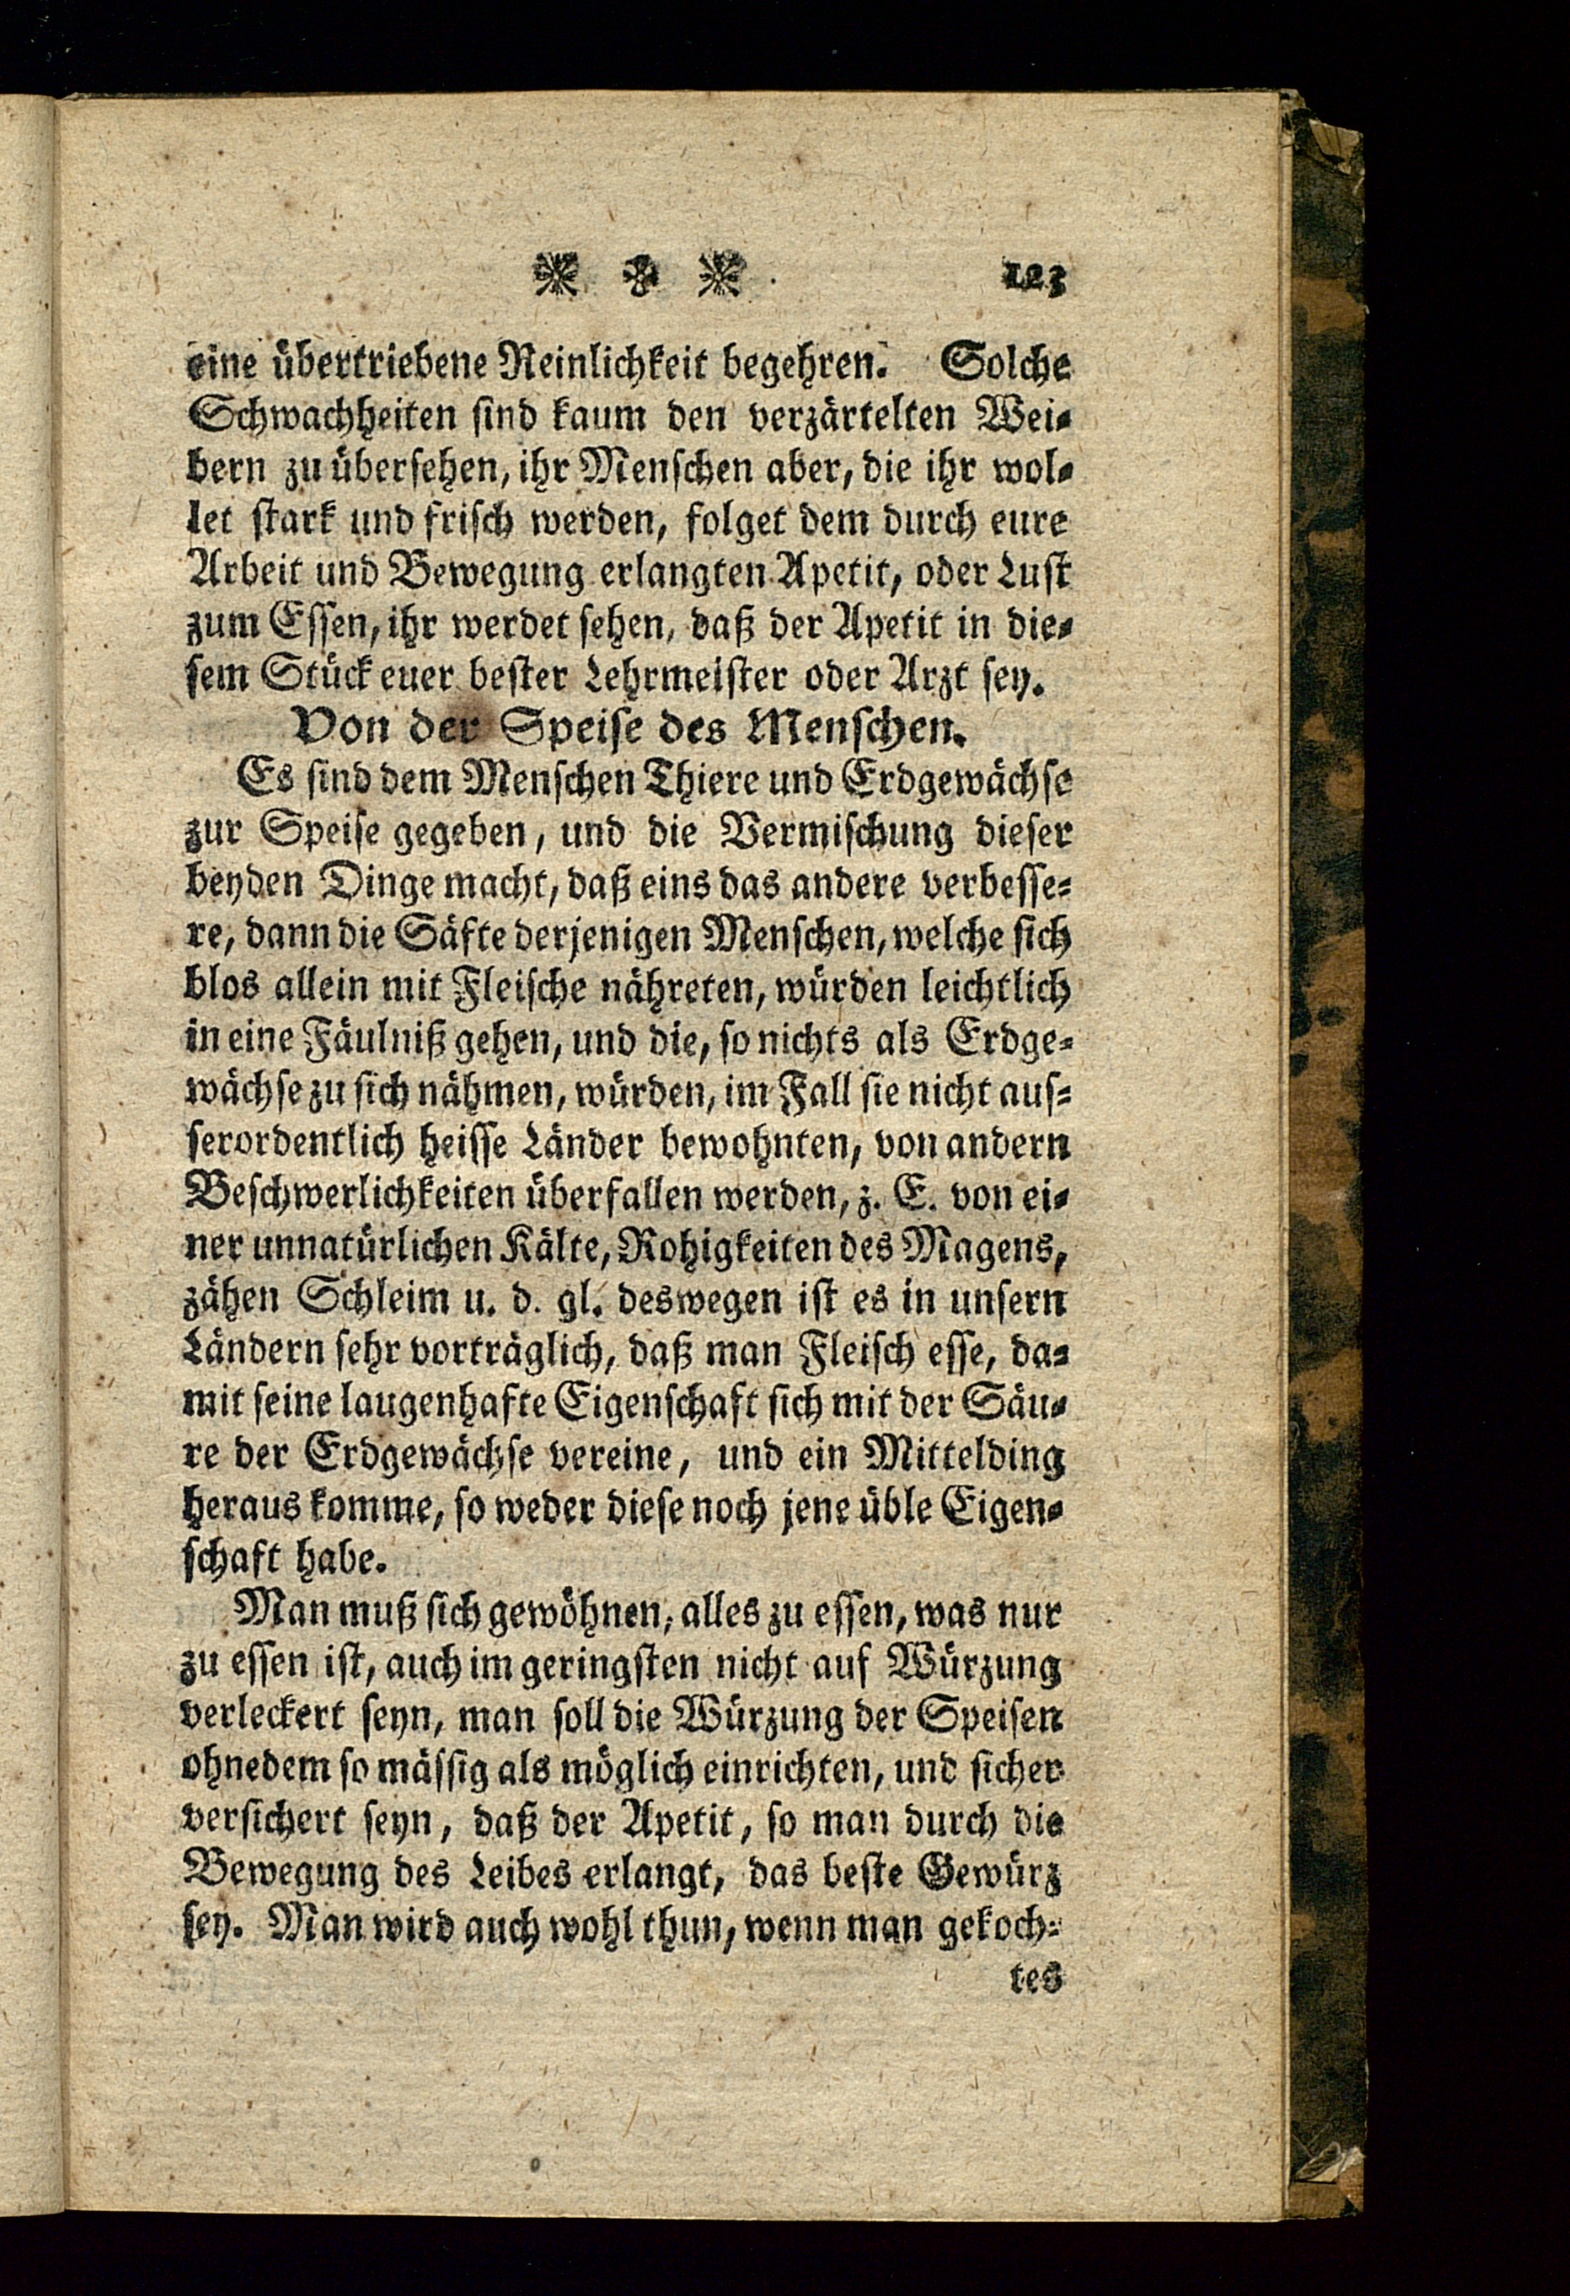 123
eine übertriebene Reinlichkeit begehren. Solche
Schwachheiten sind kaum den verzärtelten Wei-
bern zu übersehen, ihr Menschen aber, die ihr wol-
let stark und frisch werden, folget dem durch eure
Arbeit und Bewegung erlangten Apetit, oder Lust
zum Essen, ihr werdet sehen, daß der Apetit in die-
sem Stück euer bester Lehrmeister oder Arzt sey.
Von der Speise des Menschen.
Es sind dem Menschen Thiere und Erdgewächse
zur Speise gegeben, und die Vermischung dieser
beyden Dinge macht, daß eins das andere verbesse-
re, dann die Säfte derjenigen Menschen, welche sich
blos allein mit Fleische nähreten, würden leichtlich
in eine Fäulniß gehen, und die, so nichts als Erdge-
wächse zu sich nähmen, würden, im Fall sie nicht aus-
serordentlich heisse Länder bewohnten, von andern
Beschwerlichkeiten überfallen werden, z. E. von ei-
ner unnatürlichen Kälte, Rohigkeiten des Magens,
zähen Schleim u. d. gl. deswegen ist es in unsern
Ländern sehr vorträglich, daß man Fleisch esse, da-
mit seine laugenhafte Eigenschaft sich mit der Säu-
re der Erdgewächse vereine, und ein Mittelding
heraus komme, so weder diese noch jene üble Eigen-
schaft habe.
Man muß sich gewöhnen, alles zu essen, was nur
zu essen ist, auch im geringsten nicht auf Würzung
verleckert seyn, man soll die Würzung der Speisen
ohnedem so mässig als möglich einrichten, und sicher
versichert seyn, daß der Apetit, so man durch die
Bewegung des Leibes erlangt, das beste Gewürz
sey. Man wird auch wohl thun, wenn man gekoch-
tes